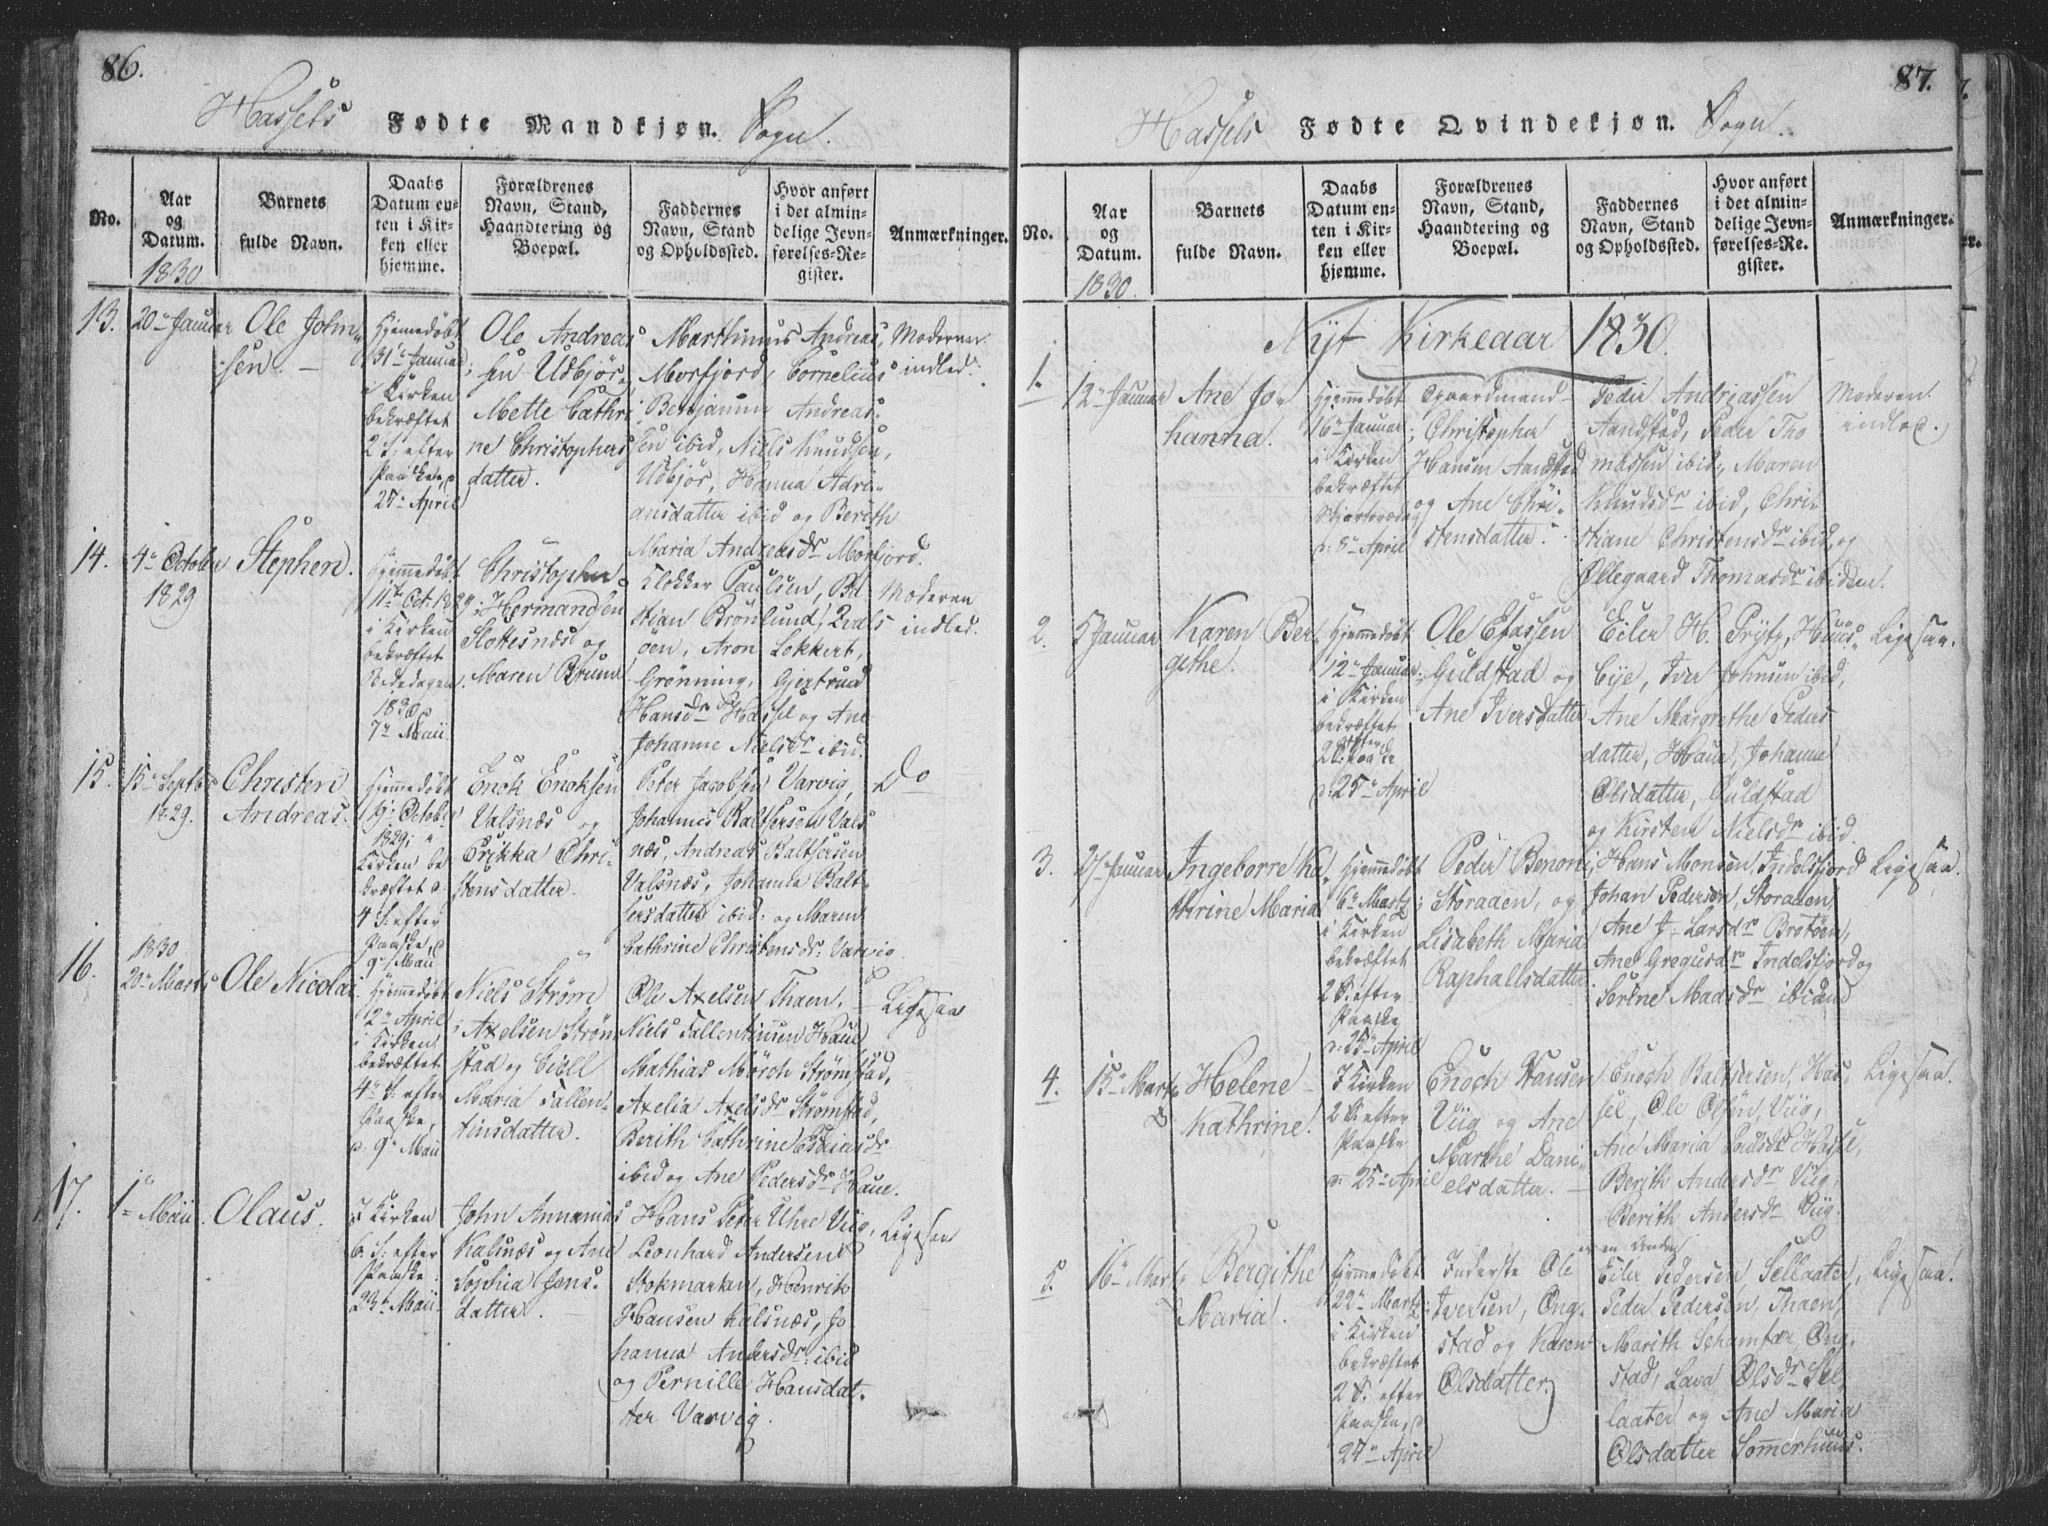 86.
Hassels Fødte Mandkjøn. Sogn.
No.
Aar
og
Datum.
1830
Barnets
fulde Navn.
Daabs
Datum en-
ten i Kir-
ken eller
hjemme.
Forældrenes
Navn, Stand,
Haandtering og
Boepæl.
Faddernes
Navn, Stand
og Opholdssted.
Hvor anført
i det almin-
delige Jevn-
førelses-Re-
gister.
Anmærkninger.
13.
20de Januar
Ole John-
sen. —
Hjemmedøbt
31te Januar,
i Kirken
bekræftet
2 S: efter
Paaske,
25de April
Ole Andreas
sen Udbjør,
Mette Cathri
ne Christophers
datter.
Marthinus Andreas,
Morfjord, Cornelius
Benjamin Andreas
sen ibid, Niels Knudsen,
Udbjør, Hanna Adri-
ansdatter ibid og Berith
Maria Andreasdr Morfjord.
Moderen
indled.
14.
4de October
1829
Stephen.
Hjemmedøbt
11te Oct: 1829,
i Kirken
bekræftet
Bededagen
1830
7de Maii
Christopher
Hermandsen
Slottesnæs og
Maren Brun
Klokker Paulsen, Bd
stian Brönlund,
öen, Aron Lokkert,
Grønning, Gjertrud
Hansdr Hassel og Ane
Johanne Nielsdr ibid.
Moderen
indled.
15.
15de Septbr
1829.
Christen
Andreas.
Hjemmedøbt
19de October
1829; i
Kirken be
kræftet
4 S: efter
Paaske
9de Maii
Enok Enoksen
Valsnæs og
Erikka Chri-
stensdatter.
Peter Jacobsen Varvig,
Johannes Baltsersen Vals
næs, Andreas Baltsersen
Valsnæs, Johanna Balt-
sersdatter ibid: og Maren
Cathrine Christensdr: Varvig.
Do
16.
1830
20de Marts
Ole Nicolai
Hjemmedøbt
12te April
i Kirken
bekræftet
4de S: efter
Paaske,
9de Maii
Niels Strøm
Axelsen Strøm
stad og Cicill
Maria Fallen-
tinsdatter.
Ole Axelsen Thaen,
Niels Fallentinsen Haue
Mathias Mörch Strømstad,
Axelia Axelsdr Strømstad,
Berith Cathrine Esaiasdr
ibid og Ane Pedersdr Haue.
Ligesaa
17.
1te Maii.
Olaus.
I Kirken
6. S: efter
Paaske
23de Maii
John Annanias
Kalsnæs og Ane
Sophia Jens-
datter.
Hans Peter Uhre Viig,
Leonhard Andersen
Stokmarken, Henrik
Hansen Kalsnæs, Jo
hanna Andersdr: ibid
og Pernille Hansdat-
ter Varvig.
Ligesaa
87.
Hassels Fødte Qvindekjøn. Sogn.
No.
Aar
og
Datum.
1830.
Barnets
fulde Navn.
Daabs
Datum en-
ten i Kir-
ken eller
hjemme.
Forældrenes
Navn, Stand,
Haandtering og
Boepæl.
Faddernes
Navn, Stand
og Opholdssted.
Hvor anført
i det almin-
delige Jevn-
førelses-Re-
gister.
Anmærkninger.
Nyt Kirkeaar 1830.
1.
12te Januar
Ane Jo-
hanna.
Hjemmedøbt
16de Januar
i Kirken
bekræftet
Skjærtorsdag
8de April
Gaardmand
Christopher
Hansen Aandstad
og Ane Chri-
stensdatter.
Peder Andreassen
Aandstad, Peder Tho
massen ibid, Maren
Knudsdr ibid, Chri-
stiane Christensdr ibid, og
Øllegaard Thomasdr ibidem.
Moderen
indled.
2.
5 Januar
Karen Ber
gethe.
Hjemmedøbt
12te Januar
i Kirken
bekræftet
2 S: efter
Paaske
25de April
Ole Esassen
Guldstad og
Ane Iversdatter
Eiler H. Prÿtz, Huus-
bye, Iver Johnsen ibid,
Ane Margrethe Peders
datter, Haue, Johanne
Olsdatter, Guldstad
og Kirsten Nielsdr ibid.
Ligesaa.
3.
27de Januar
Ingeborre Ka
thrine Maria
Hjemmedøbt
6te Martz
i Kirken
bekræftet
2 S. efter
Paaske
25de April
Peder Benoni
Storaaen, og
Lisabeth Maria
Raphaelsdatter
Hans Monsen, Indelsfjord
Johan Pedersen, Storaaen
Ane J- Larsdr Brotöen,
Ane Gregusdr Indelsfjord og
Serine Madsdr ibidem
Ligesaa.
4.
15de Martz
Helene
Kathrine.
I Kirken
2 S. efter
Paaske
25de April
Enoch Hansen
Viig og Ane
Marthe Dani-
elsdatter. —
Enogh Baltsersen, Has
sel, Ole Olsen, Viig,
Ane Maria Hassel,
Berith Andersdr Viig,
Berith Andersdr Viig.
en anden
Ligesaa.
5.
16de Martz
Bergithe
Maria.
Hjemmedøbt
22de Martz
i Kirken
bekræftet
2 S. efter
Paaske,
25de April
Inderste Ole
Iversen, Ong-
stad og Karen
Olsdatter.
Eiler Pedersen, Sellaater,
Peder Pedersen, Thaen,
Marith Schamfær, Ong-
stad, Lava Olsdr Sel-
laater og Ane Maria
Olsdatter Sommerhuus.
Ligesaa.